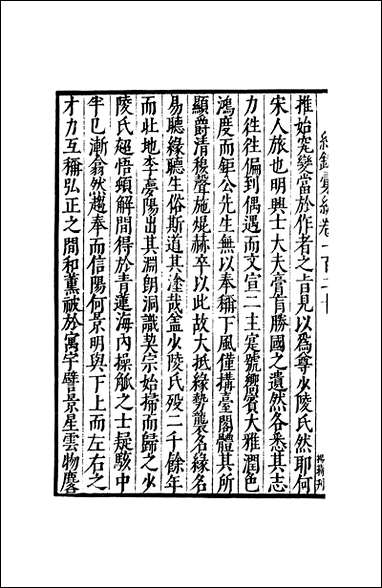 推始究變當於作者之旨見以爲尊少陵氏然耶何
宋人旅也明興士大夫啻有勝國之遺然各悉其志
力徃徃偏到偶遇而文宣二主寔號嚮賓大雅潤色
鴻度而鉅公先生無以奉稱下風僅搆臺閣體其所
顯爵清穠聲施焜赫卒以此故大抵緣勢襲名緣名
易聽緣聽生俗斯道其塗哉盖少陵氏歿二千餘年
而此地李慶陽出其淵朗洞識契宗始掃而歸之少
陵氏超悟頓解間得於青蓮海内操觚之士疑駭中
半巳漸翕然趨奉而信陽何景明與下上而左右之
才力互稱弘正之間和薰祓於寓宇譬景星雲物麐